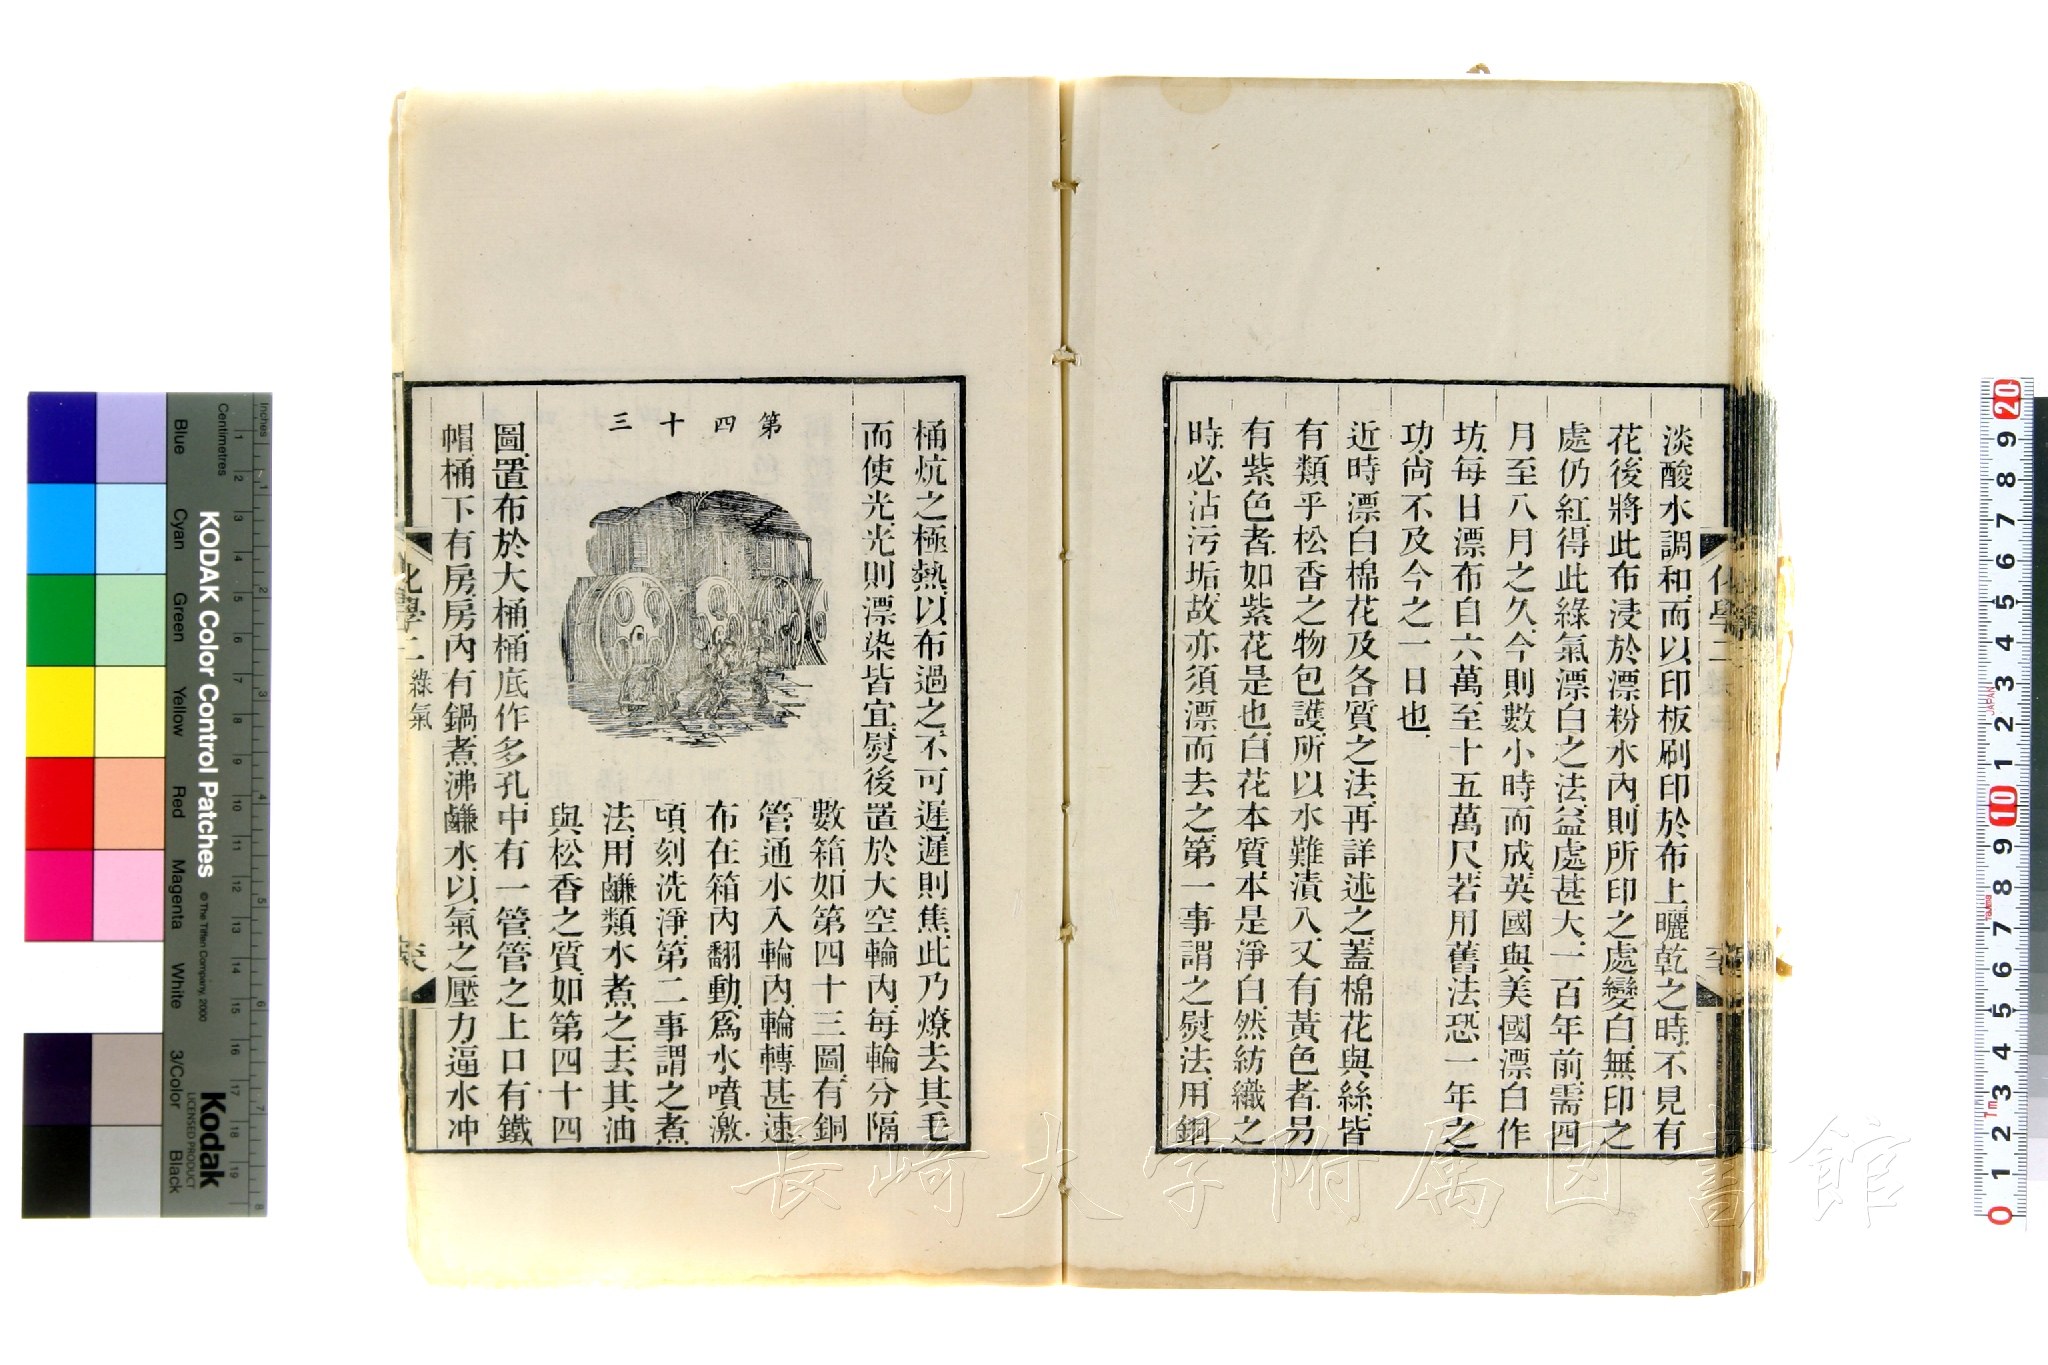 淡酸水調和而以印板刷印於布上曬乾之時不見有
花後將此布浸於漂粉水內則所印之處變白無印之
處仍紅得此綠氣漂白之法益處甚大一百年前需四
月至八月之久今則數小時而成英國與美國漂白作
坊每日漂布自六萬至十五萬尺若用舊法恐一年之
功尚不及今之一日也
近時漂白棉花及各質之法再詳述之蓋棉花與絲皆
有類乎松香之物包護所以水難漬入又有黃色者另
有紫色者如紫花是也白花本質本是淨白然紡織之
時必沾污垢故亦須漂而去之第一事謂之熨法用銅
桶炕之極熱以布過之不可遲遲則焦此乃燎去其毛
而使光光則漂染皆宜熨後置於大空輪內每輪分隔
第四十三
數箱如第四十三圖有銅
管通水入輪內輪轉甚速
布在箱內翻動為水噴激
頃刻洗淨第二事謂之煮
法用鹻類水煮之去其油
與松香之質如第四十四
圖置布於大桶桶底作多孔中有一管管之上口有鐵
帽桶下有房房內有鍋煮沸鹻水以氣之壓力逼水冲
化學二 綠氣
化學二
長崎大学附属図書館
KODAK Color Control Patches
© The Tiffen Company, 2000
Kodak
LICENSED PRODUCT
Inches
Centimetres
Blue
Cyan
Green
Yellow
Red
Magenta
White
3/Color
Black
JAPAN